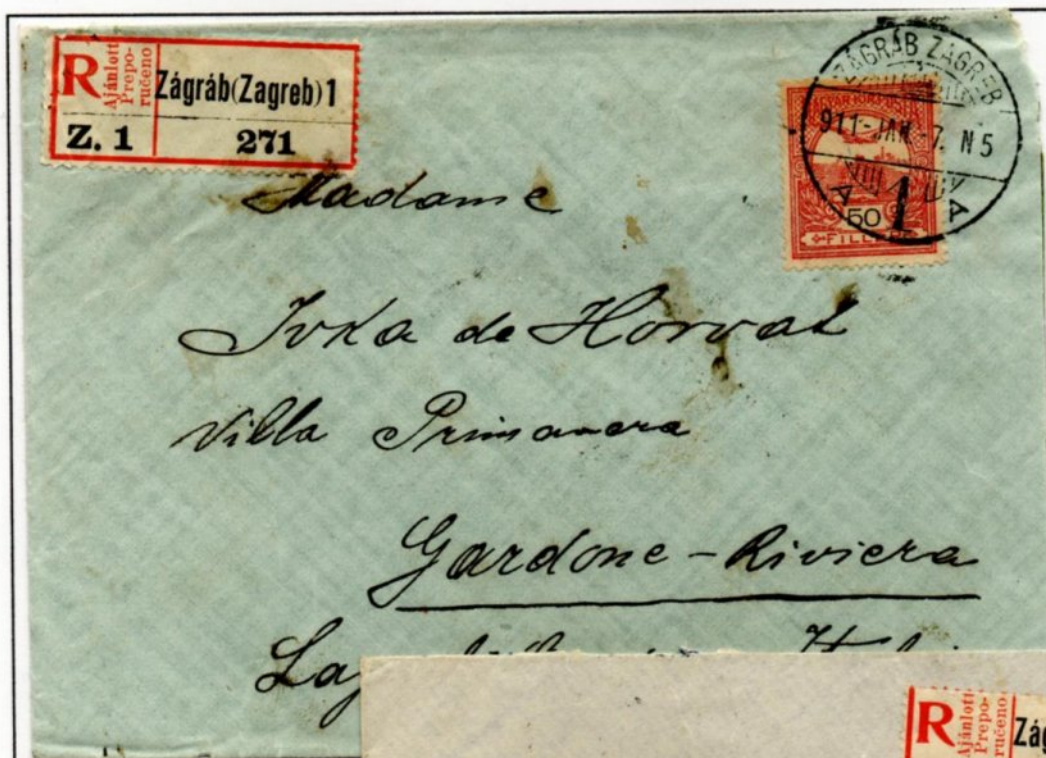 R Ajánlott
Prepo-
ručeno
Zágráb(Zagreb)1
Z. 1 271
ZÁGRÁB ZAGREB
911-JAN.-7. N5
A 1 A
MAGYAR KIR. POSTA
50
FILLÉR
Madame
Ivka de Horvat
Villa Primavera
Gardone-Riviera
R Ajánlott
Prepo-
ručeno